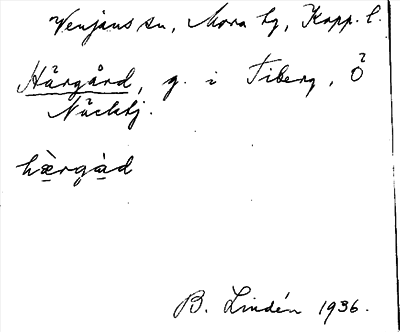 Venjans sn, Mora tg, Kopp. l.
Härgård, g. i Tiberg, Ö
Näckbj.
hæ̀rgàd
B. Lindén 1936.